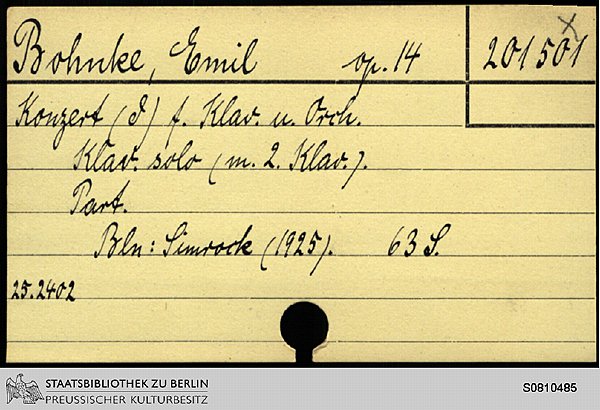 Bohnke, Emil op. 14 201501 x
Konzert (d) f. Klav. u. Orch.
Klav. solo (m. 2. Klav.).
Part.
Bln: Simrock (1925). 63 S.
25.2402
STAATSBIBLIOTHEK ZU BERLIN
PREUSSISCHER KULTURBESITZ
S0810485